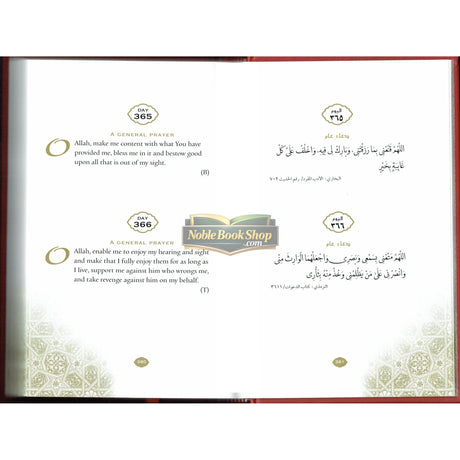 DAY
365
A GENERAL PRAYER
O Allah, make me content with what You have
provided me, bless me in it and bestow good
upon all that is out of my sight.
(B)
DAY
366
A GENERAL PRAYER
O Allah, enable me to enjoy my hearing and sight
and make that I fully enjoy them for as long as
I live, support me against him who wrongs me,
and take revenge against him on my behalf.
(T)
380
اليوم
٣٦٥
دعاء عام
اللَّهُمَّ قَنِّعْنِي بِمَا رَزَقْتَنِي، وَبَارِكْ لِي فِيهِ، وَاخْلُفْ عَلَى كُلِّ
غَائِبَةٍ بِخَيْرٍ
اليوم
٣٦٦
دعاء عام
اللَّهُمَّ مَتِّعْنِي بِسَمْعِي وَبَصَرِي وَاجْعَلْهُمَا الْوَارِثَ مِنِّي
وَانْصُرْنِي عَلَى مَنْ يَظْلِمُنِي وَخُذْ مِنْهُ بِثَأْرِي
381
NobleBookShop
.com